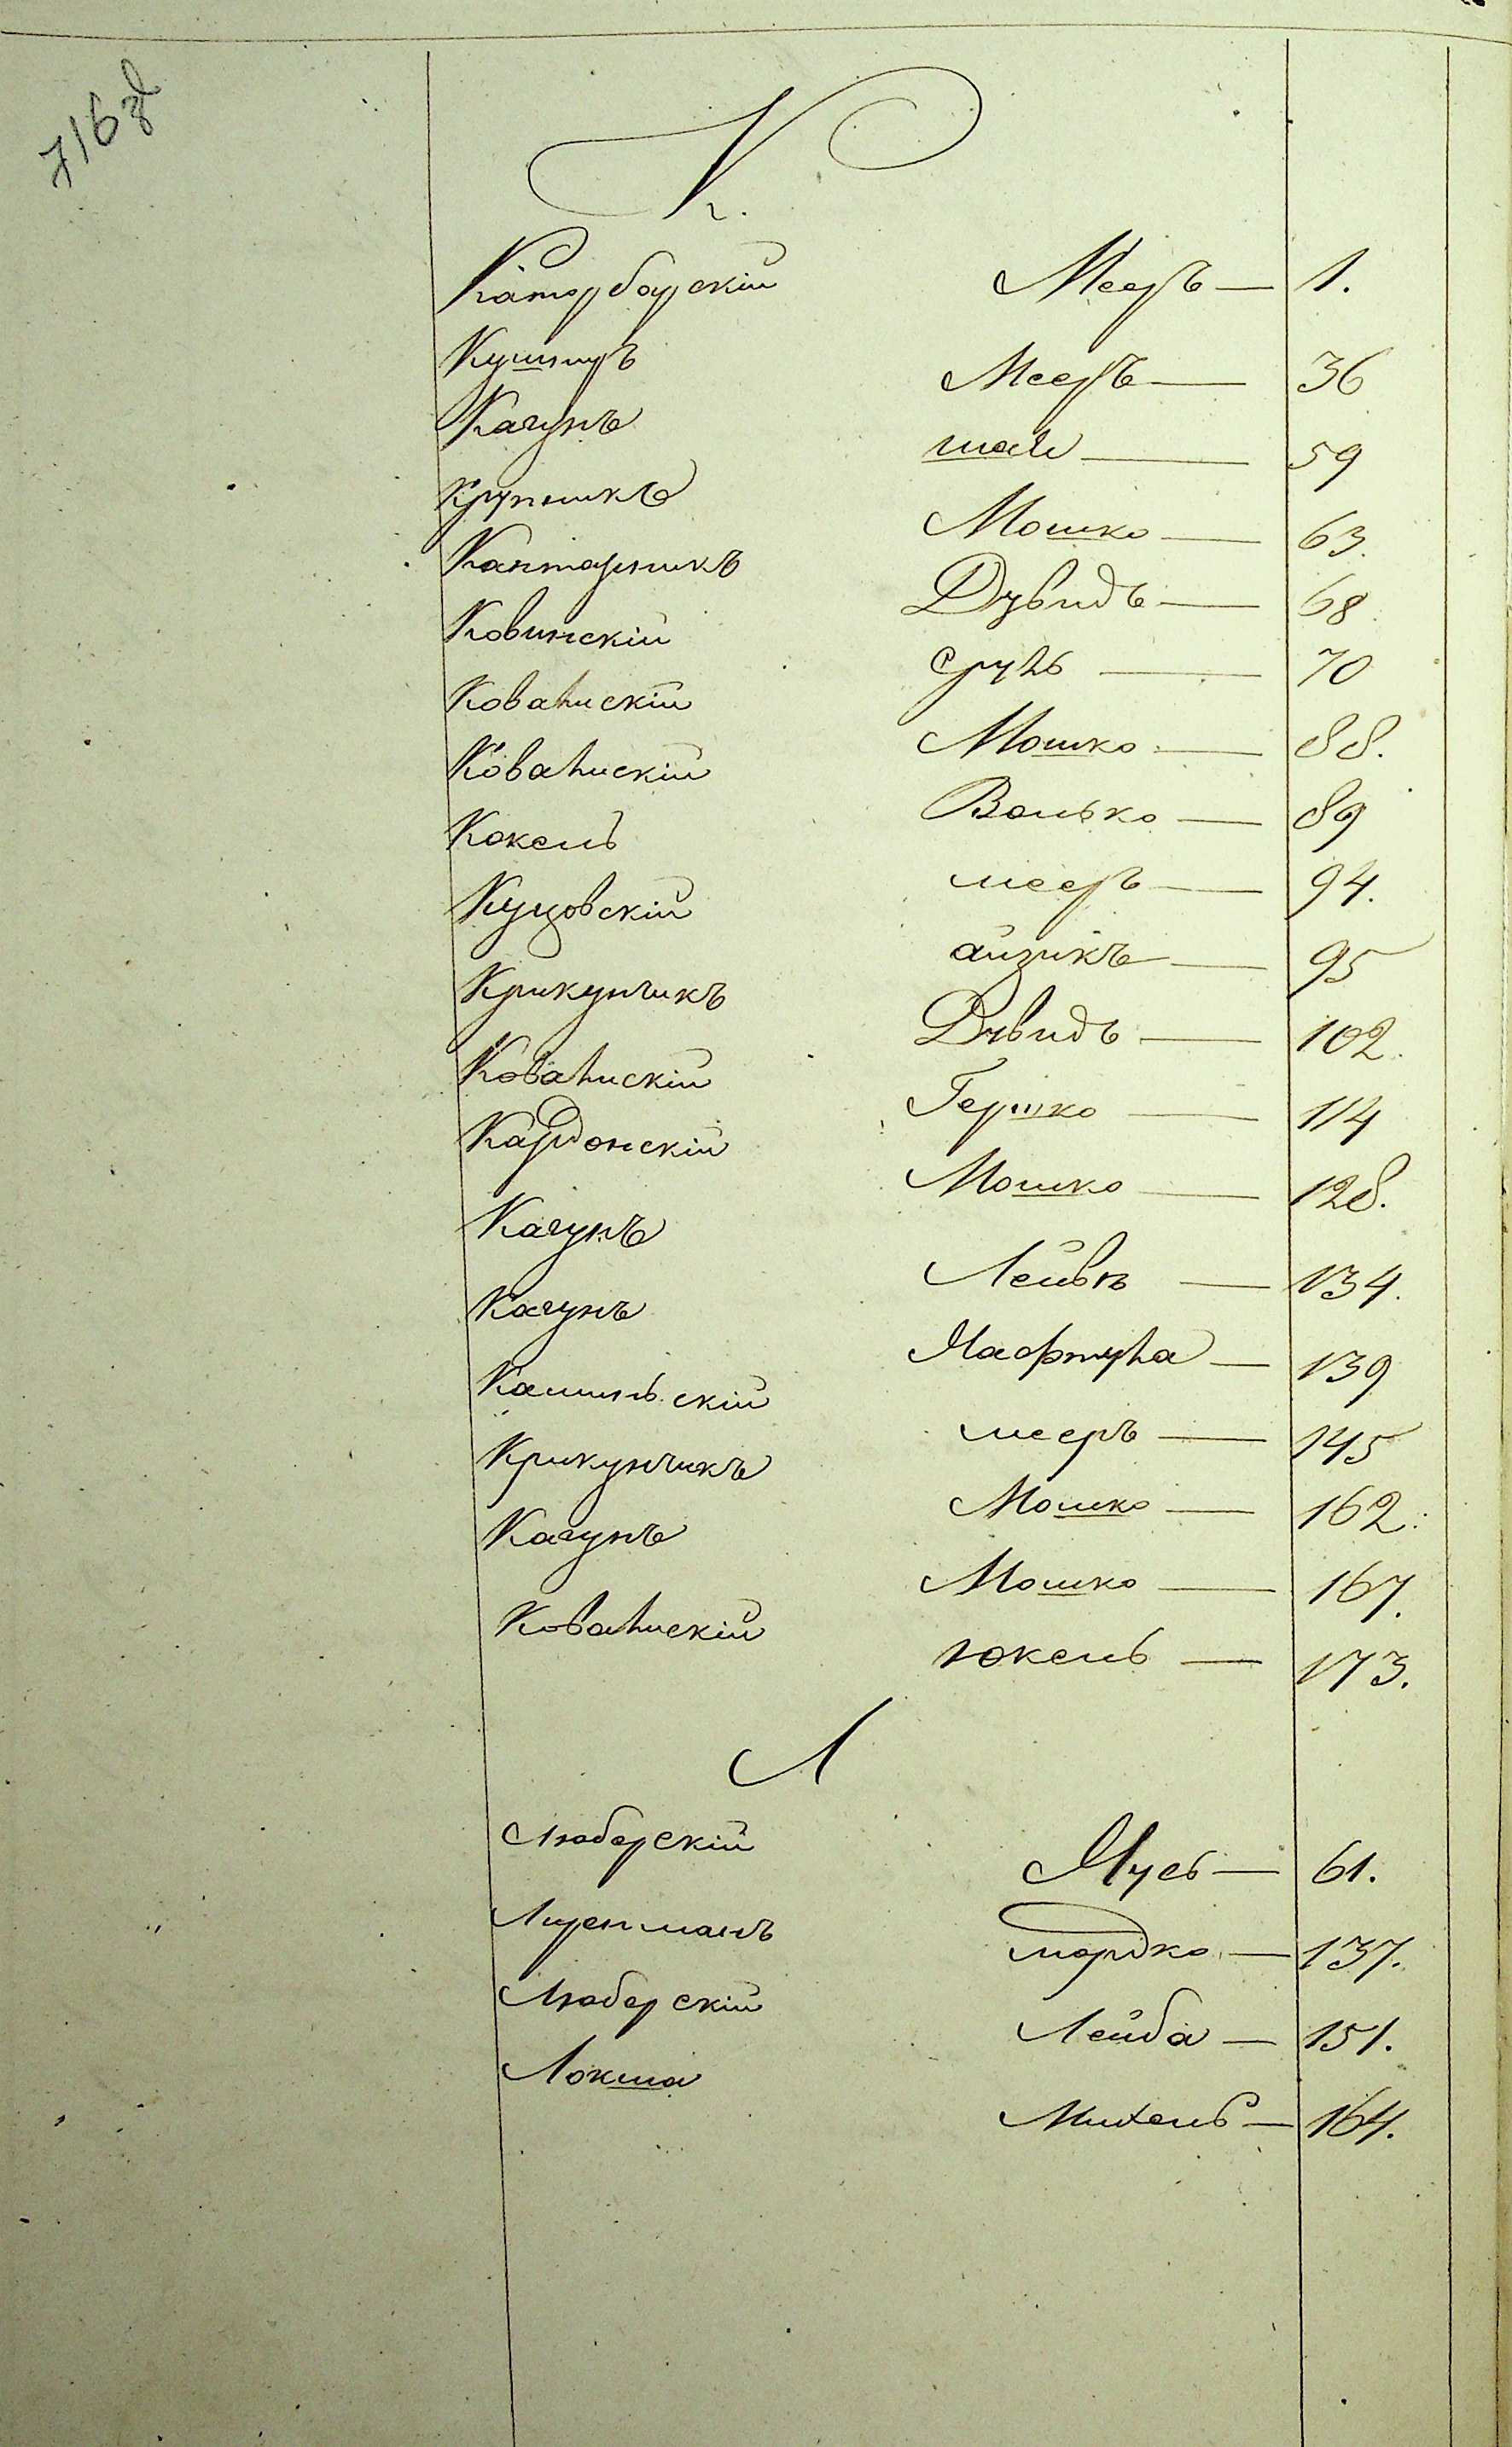 716 об
К.
Каторбарскій Мееръ — 1.
Кушниръ Мееръ — 36
Кагунъ шая — 59
Крупникъ Мошко — 63.
Каптарникъ Дувидъ — 68
Ковинскій сруль — 70
Ковалискій Мошко — 88.
Ковалискій Волько — 89
Кокель меєръ — 94.
Куцовскій айзикъ — 95
Крикунчикъ Дувидъ — 102.
Ковалискій Гершко — 114
Кардонскій Мошко — 128.
Кагунъ Лейвъ — 134.
Кагунъ Нафтула — 139
Каминьскій мееръ — 145
Крикунчикъ Мошко — 162.
Кагунъ Мошко — 167.
Ковалискій юкель — 173.
Л
Любарскій Мусь — 61.
мордко — 137.
Любарскій Лейба — 151.
Локша Михель — 164.